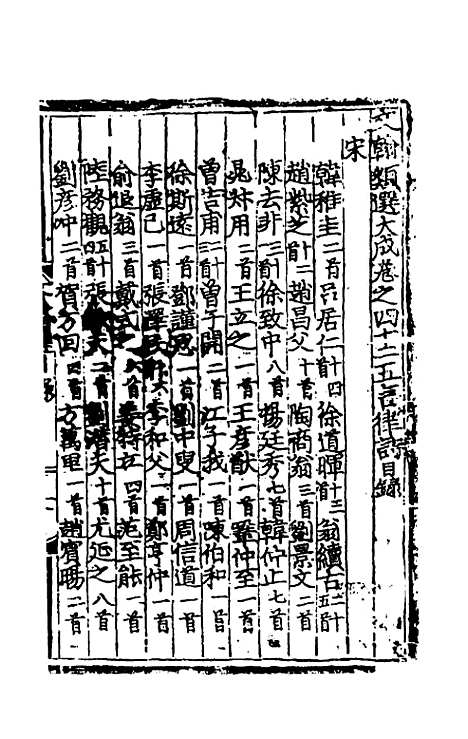 文翰類選大成卷之四十三五言律詩目錄
宋
韓稚圭二首呂居仁四首徐道暉三首翁續古五首
趙紫之二首趙昌父十首陶商翁三首劉景文二首
陳去非三首徐致中八首楊廷秀七首韓仲止七首
晁叔用二首王立之一首王彥猷一首 仲至一首
曾吉甫三首曾子開二首江子我一首陳伯和一首
徐斯遠一首鄧謹思一首劉中叟一首周信道一首
李虛己一首張澤民 首李和父一首鄭亨仲一首
俞退翁三首戴式之 首姜特立四首范至能一首
陸務觀五首張 夫二首劉潛夫十首尤延之八首
劉彥冲二首賀方回四首方萬里一首趙賓暘二首